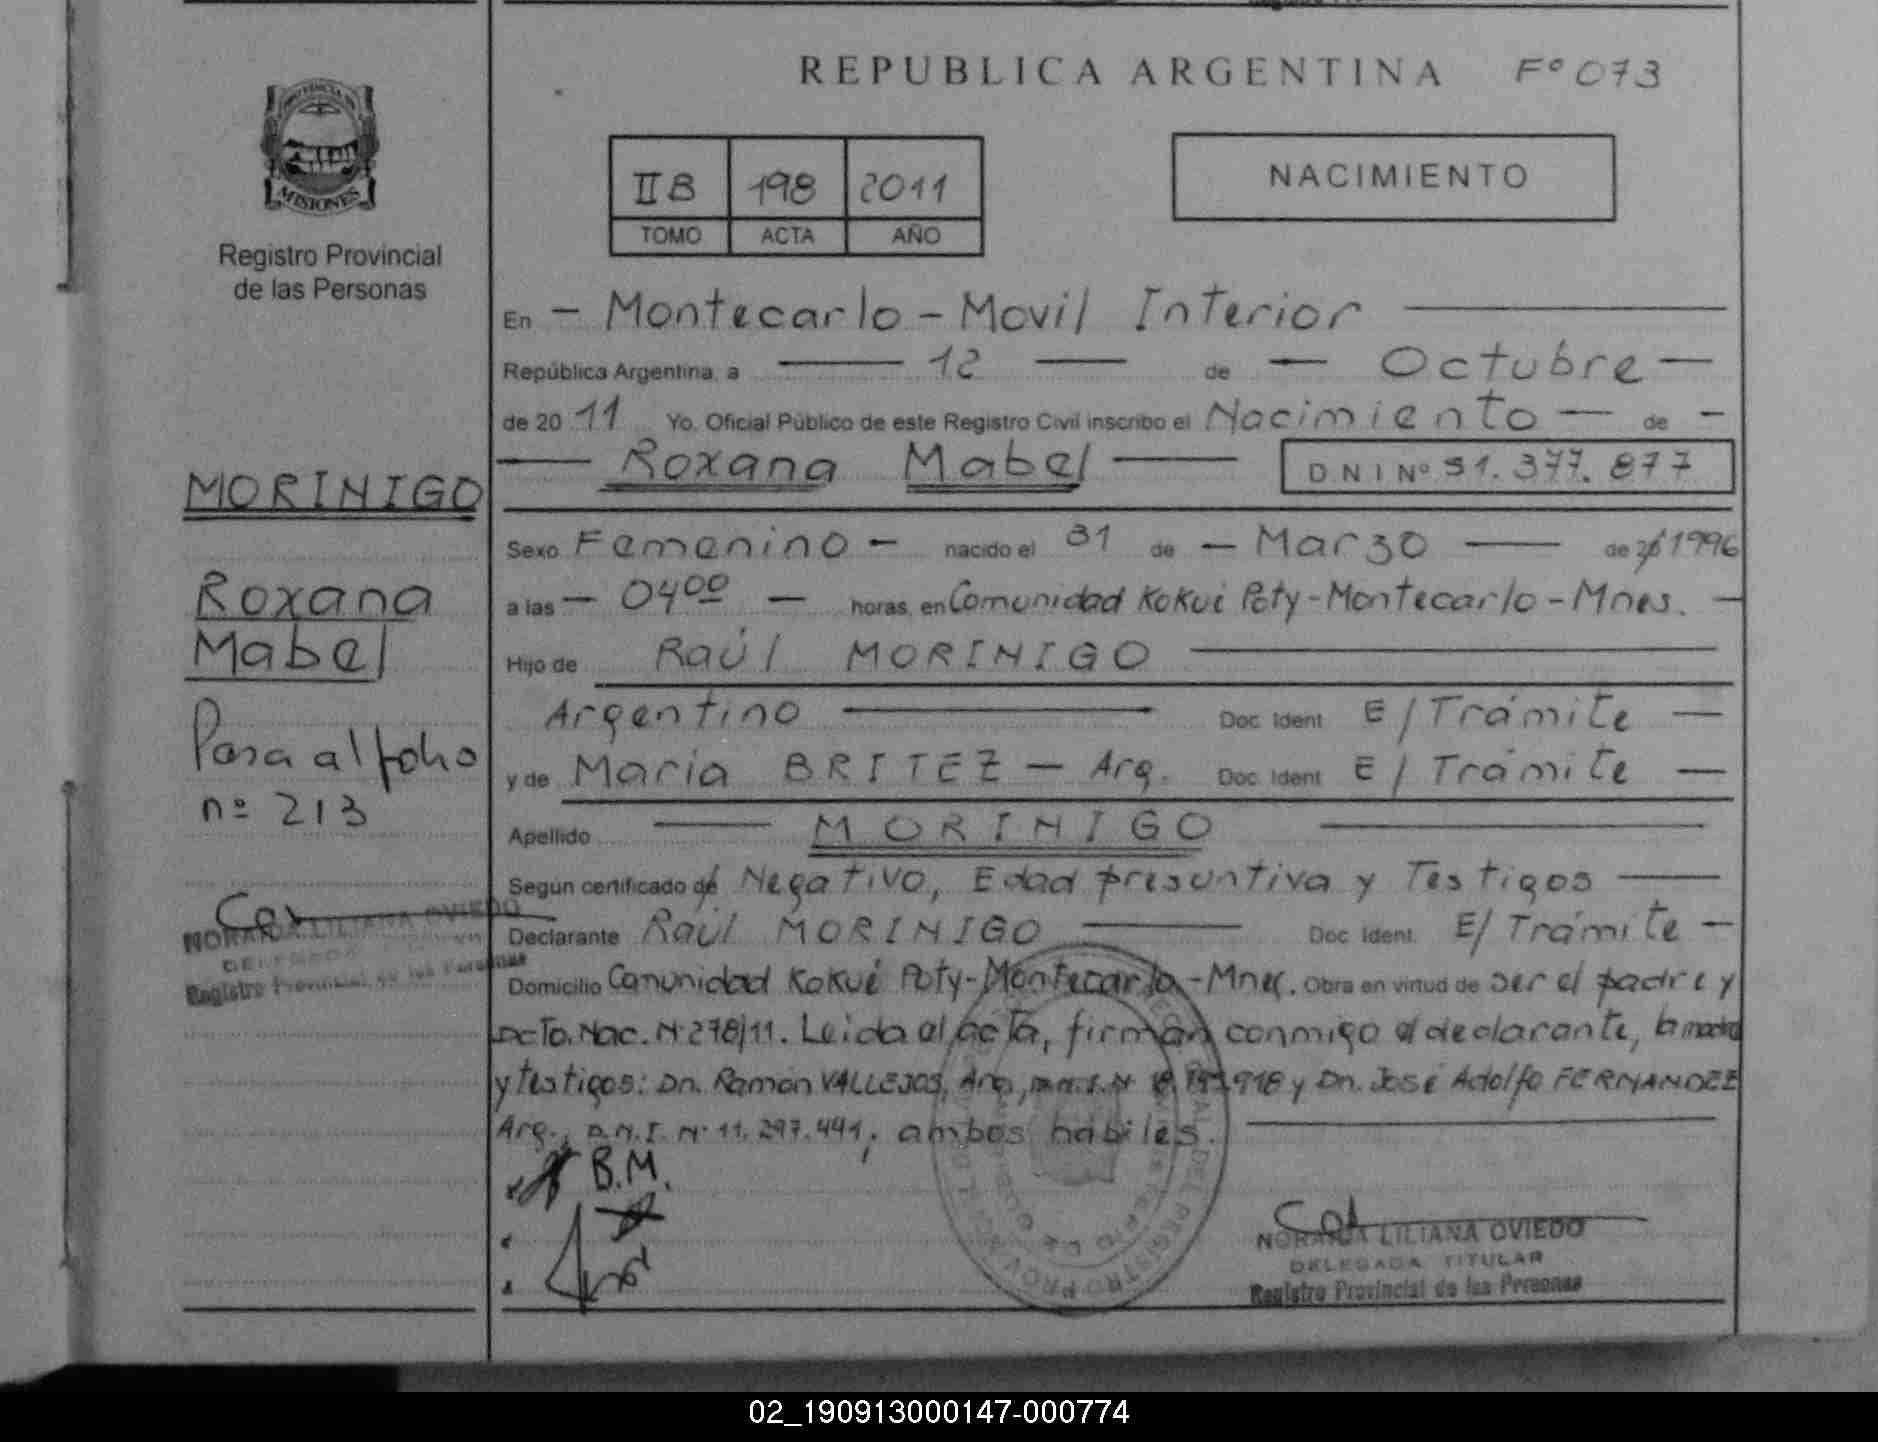 REPUBLICA ARGENTINA Fº 073
MISIONES
Registro Provincial
de las Personas
IIB 198 2011
TOMO ACTA AÑO
NACIMIENTO
En - Montecarlo - Movil Interior
República Argentina, a 12 de - Octubre -
de 20 11 Yo, Oficial Público de este Registro Civil inscribo el Nacimiento - de -
Roxana Mabel
MORINIGO
Roxana
Mabel
Pasa al folio
nº 213
Sexo Femenino - nacido el 31 de - Marzo de 1996
a las - 04⁰⁰ - horas, en Comunidad Kokué Poty - Montecarlo - Mnes. -
Hijo de Raúl MORINIGO
Argentino Doc. Ident. E/Trámite -
y de Maria BRITEZ - Arg. Doc. Ident. E/Trámite -
Apellido MORINIGO
Según certificado de Negativo, Edad presuntiva y Testigos
Declarante Raúl MORINIGO Doc. Ident. E/Trámite -
Domicilio Comunidad Kokué Poty - Montecarlo - Mnes. Obra en virtud de ser el padre y
Acto. Nac. Nº 278/11. Leida el acta, firman conmigo el declarante, la madre
y testigos: Dn. Ramón VALLEJOS, Arg., D.N.I. Nº y Dn. José Adolfo FERNANDEZ
Arg., D.N.I. Nº 11.297.491, ambos hábiles.
B.M.
NORAIDA LILIANA OVIEDO
DELEGADA
Registro Provincial de las Personas
NORAIDA LILIANA OVIEDO
DELEGADA TITULAR
Registro Provincial de las Personas
02_190913000147-000774